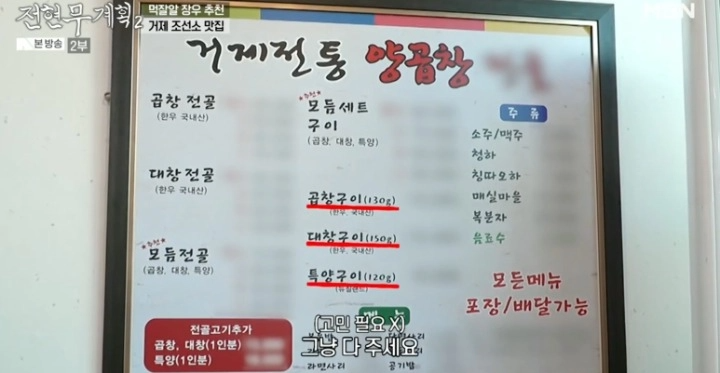 전현무계획2
본방송 2부
먹잘알 장우 추천
거제 조선소 맛집
거제전통 양곱창
곱창전골
(한우 국내산)
대창전골
(한우 국내산)
추천
모듬전골
(곱창, 대창, 특양)
전골고기추가
곱창, 대창(1인분)
특양(1인분)
추천
모듬세트
구이
(곱창, 대창, 특양)
곱창구이(130g)
(한우, 국내산)
대창구이(150g)
(한우, 국내산)
특양구이(120g)
(뉴질랜드)
메뉴
라면사리
공기밥
주류
소주/맥주
청하
칭따오하
매실마을
복분자
음료수
모든메뉴
포장/배달가능
(고민 필요 X)
그냥 다 주세요